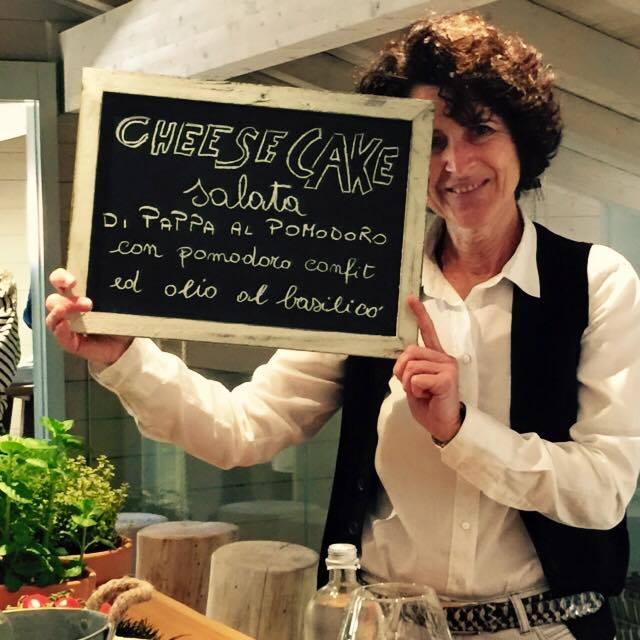 CHEESE CAKE
salata
DI PAPPA AL POMODORO
con pomodoro confit
ed olio al basilico